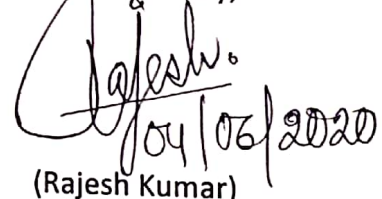 Rajesh.
04/06/2020
(Rajesh Kumar)